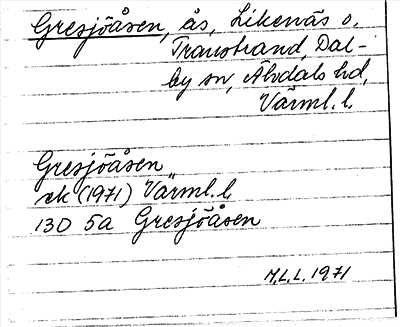 Gresjöåsen, ås, Likenäs o.
Transtrand, Dal-
by sn, Älvdals hd,
Värml. l.
Gresjöåsen
ek (1971) Värml. l.
13D 5a Gresjöåsen
M.L.L. 1971